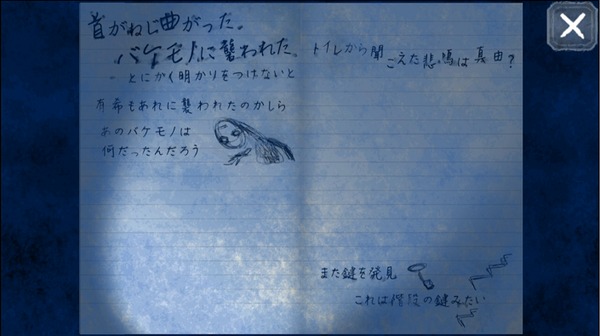 首がねじ曲がった。
バケモノに襲われた。
とにかく明かりをつけないと
有希もあれに襲われたのかしら
あのバケモノは
何だったんだろう
トイレから聞
こえた悲鳴は真由?
また鍵を発見
これは階段の鍵みたい